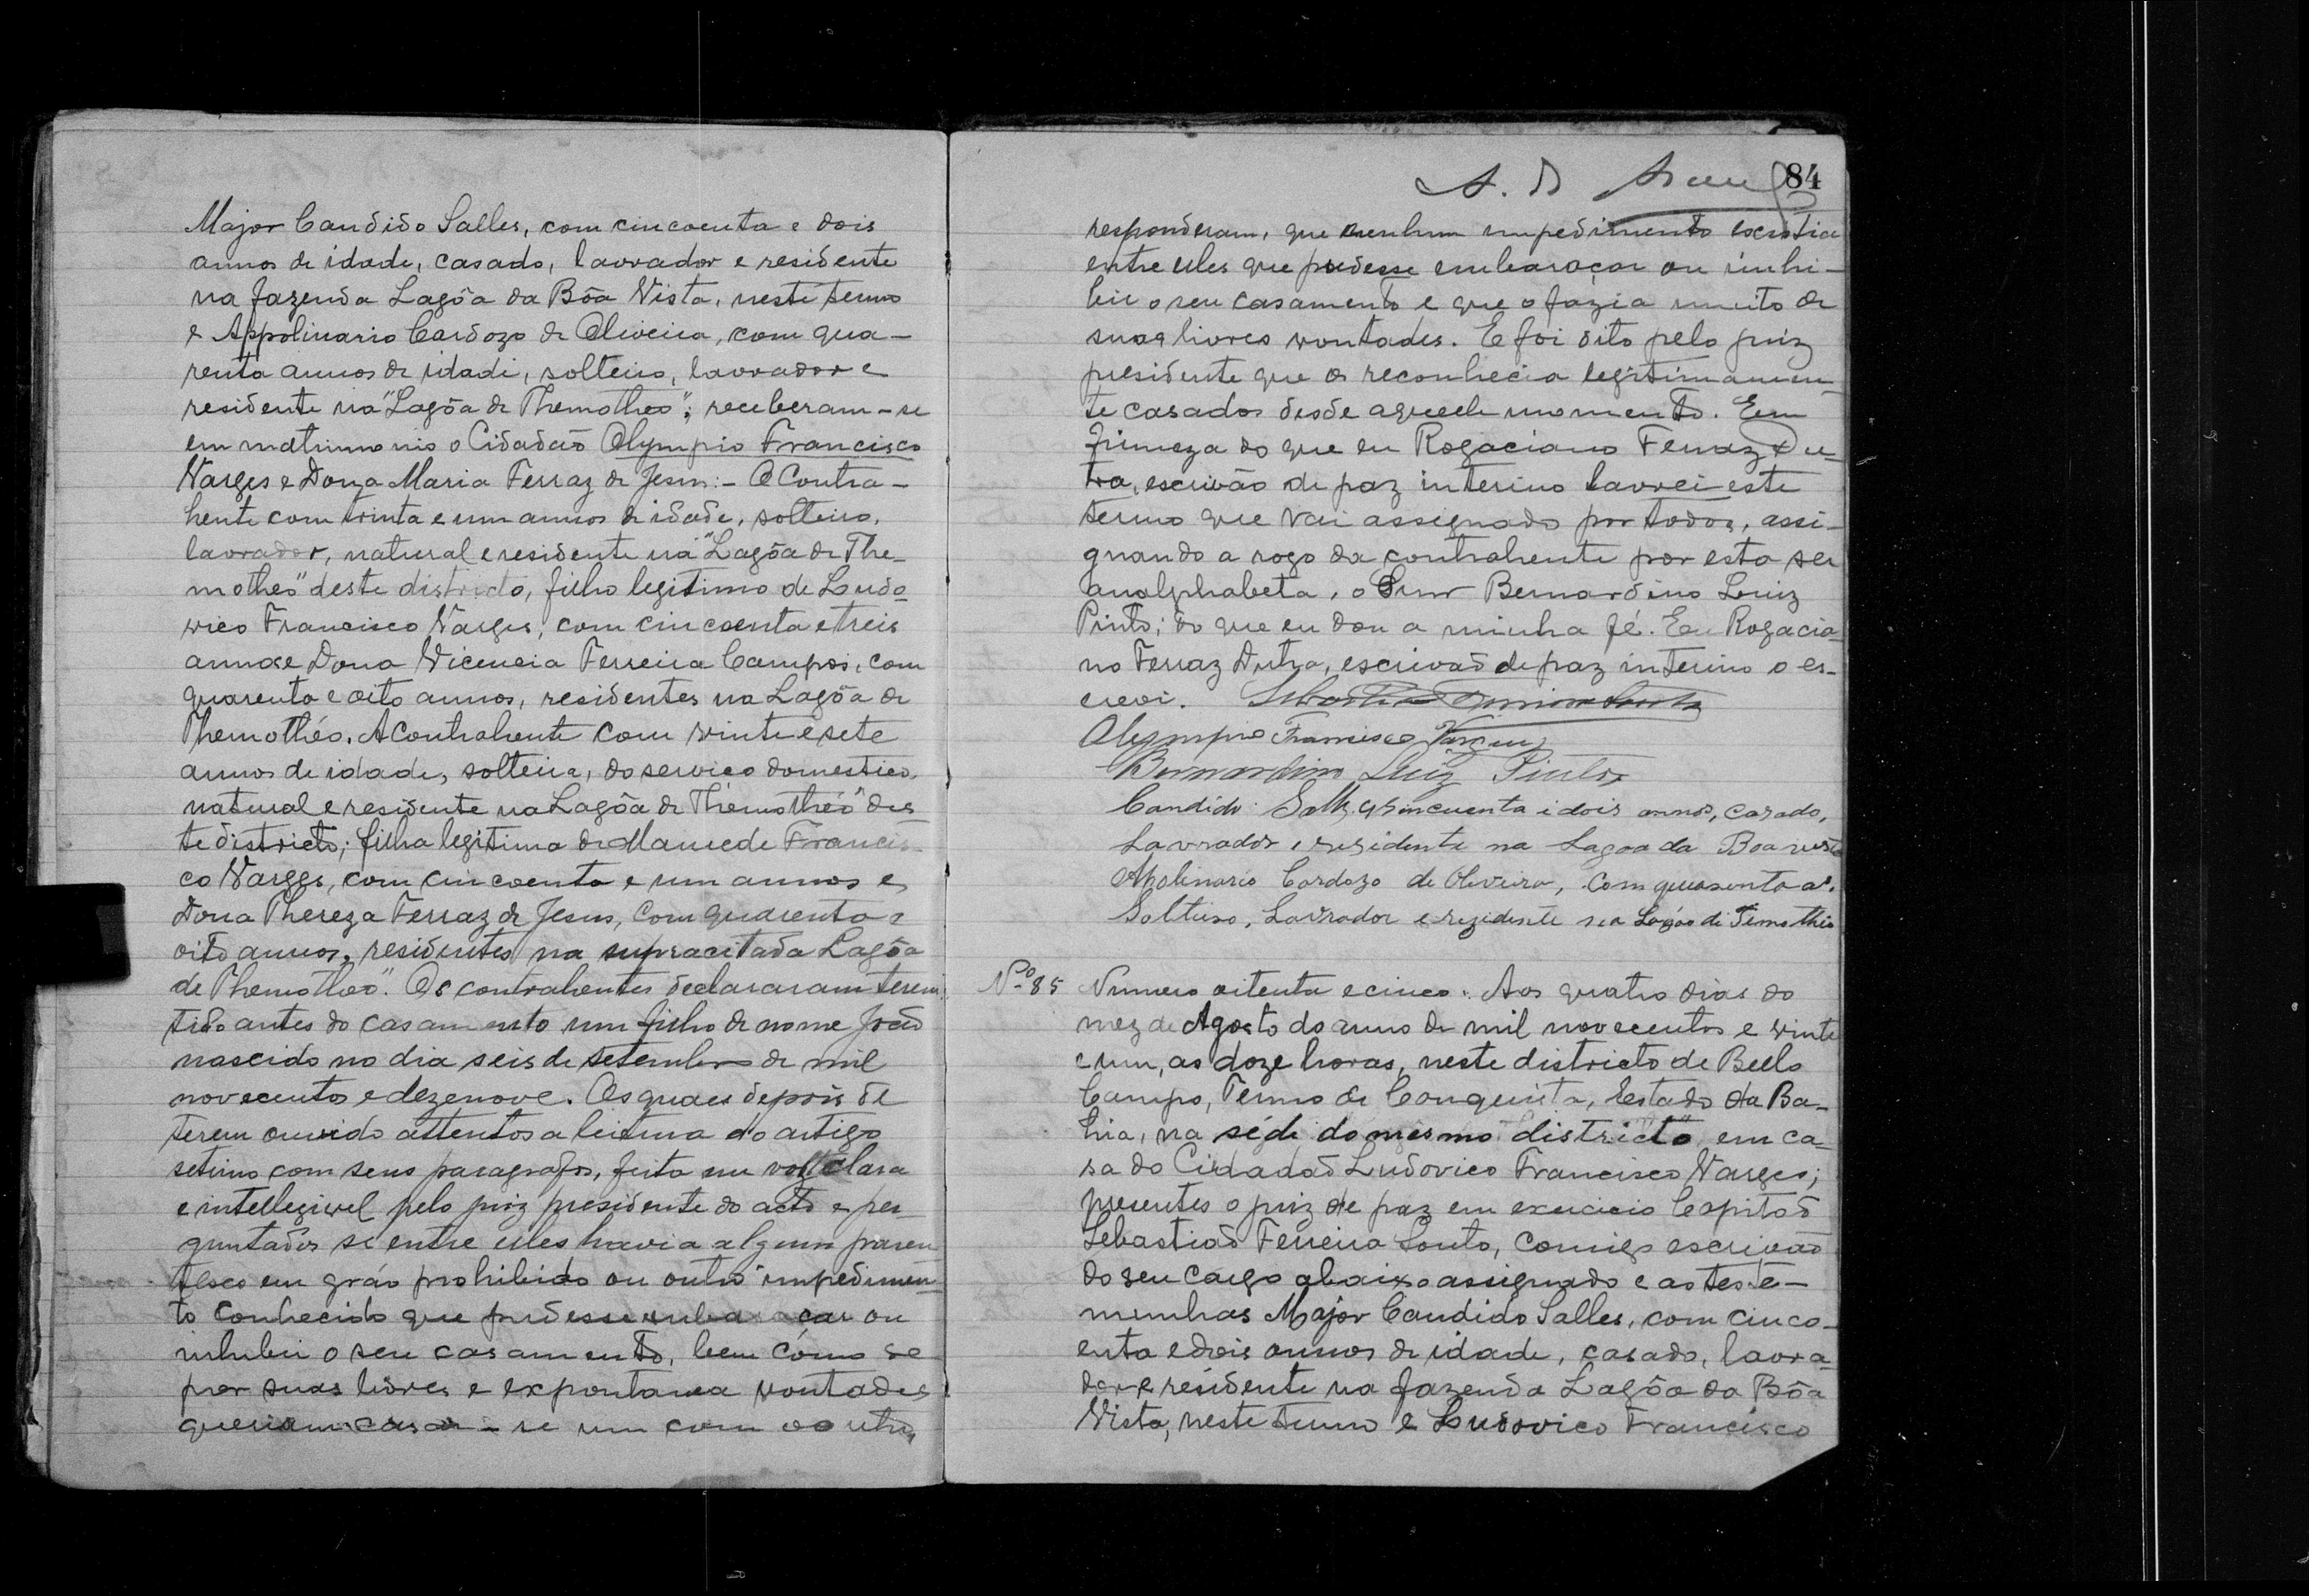 Major Candido Salles, com cincoenta e dois
annos de idade, casado, lavrador e residente
na fazenda Lagôa da Bôa Vista, neste termo
e Appolinario Cardozo de Oliveira, com qua-
renta annos de idade, solteiro, lavrador e
residente na "Lagôa de Themotheo", receberam-se
em matrimonio o Cidadão Olympio Francisco
Varges e Dona Maria Ferraz de Jesus:- O Contra-
hente com trinta e um annos de idade, solteiro,
lavrador, natural e residente na "Lagôa de The-
motheo" deste districto, filho legitimo de Ludo-
vico Francisco Varges, com cincoenta e treis
annos e Dona Vicencia Ferreira Campos, com
quarenta e oito annos, residentes na Lagôa de
Themothéo. A Contrahente com vinte e sete
annos de idade, solteira, do serviço domestico,
natural e residente na Lagôa de Themothéo" des
te districto; filha legitima de Mamede Francis-
co Varges, com cincoenta e um annos e
Dona Thereza Ferraz de Jesus, com quarenta e
oito annos, residentes na supracitada Lagôa
de Themotheo". Os contrahentes declararam terem
tido antes do casamento um filho de nome João
nascido no dia seis de setembro de mil
novecentos e dezenove. Os quaes depois de
terem ouvido attentos a leitura do artigo
setimo com seus paragrafos, feita em voz clara
e intellegivel pelo juiz presidente do acto e per-
guntados si entre elles havia algum paren
tesco em gráo prohibido ou outro impedimen-
to conhecido que pudesse embaraçar ou
inhibir o seu casamento, bem como se
por suas livres e expontanea vontades
queriam casar-se um com o outro,
84
responderam, que nenhum impedimento existia
entre elles que pudesse embaraçar ou inhi-
bir o seu casamento e que o fazia muito de
suas livres vontades. E foi dito pelo juiz
presidente que os reconhecia legitimamen-
te casados desde aquelle momento. Em
firmeza do que eu Rogaciano Ferraz Du-
tra, escrivão de paz interino lavrei este
termo que vai assignado por todos, assi-
gnando a rogo da contrahente por esta ser
analphabeta, o Snnr Bernardino Luiz
Pinto; do que eu dou a minha fé. Eu Rogacia-
no Ferraz Dutra, escrivão de paz interino o es-
crevi.
Olympio Francisco
Bernardino Luiz Pinto
Candido Salles cincuenta i dois annos, casado,
Lavrador e residente na Lagoa da Boa vista
Apolinario Cardozo de Oliveira, com quarenta as.
Solteiro, Lavrador e rezidente na Lagôa di Timothio
Nº 85 Numero oitenta e cinco. Aos quatro dias do
mez de Agosto do anno de mil novecentos e vinte
e um, as doze horas, neste districto de Bello
Campo, Termo de Conquista, Estado da Ba-
hia, na séde do mesmo districto, em ca-
sa do Cidadão Ludovico Francisco Varges;
presentes o juiz de paz em exercicio Capitão
Sebastião Ferreira Souto, comigo escrivão
do seu cargo abaixo assignado e as teste-
munhas Major Candido Salles, com cinco-
enta e dois annos de idade, casado, lavra-
dor e residente na fazenda Lagôa da Bôa
Vista, neste termo e Ludovico Francisco